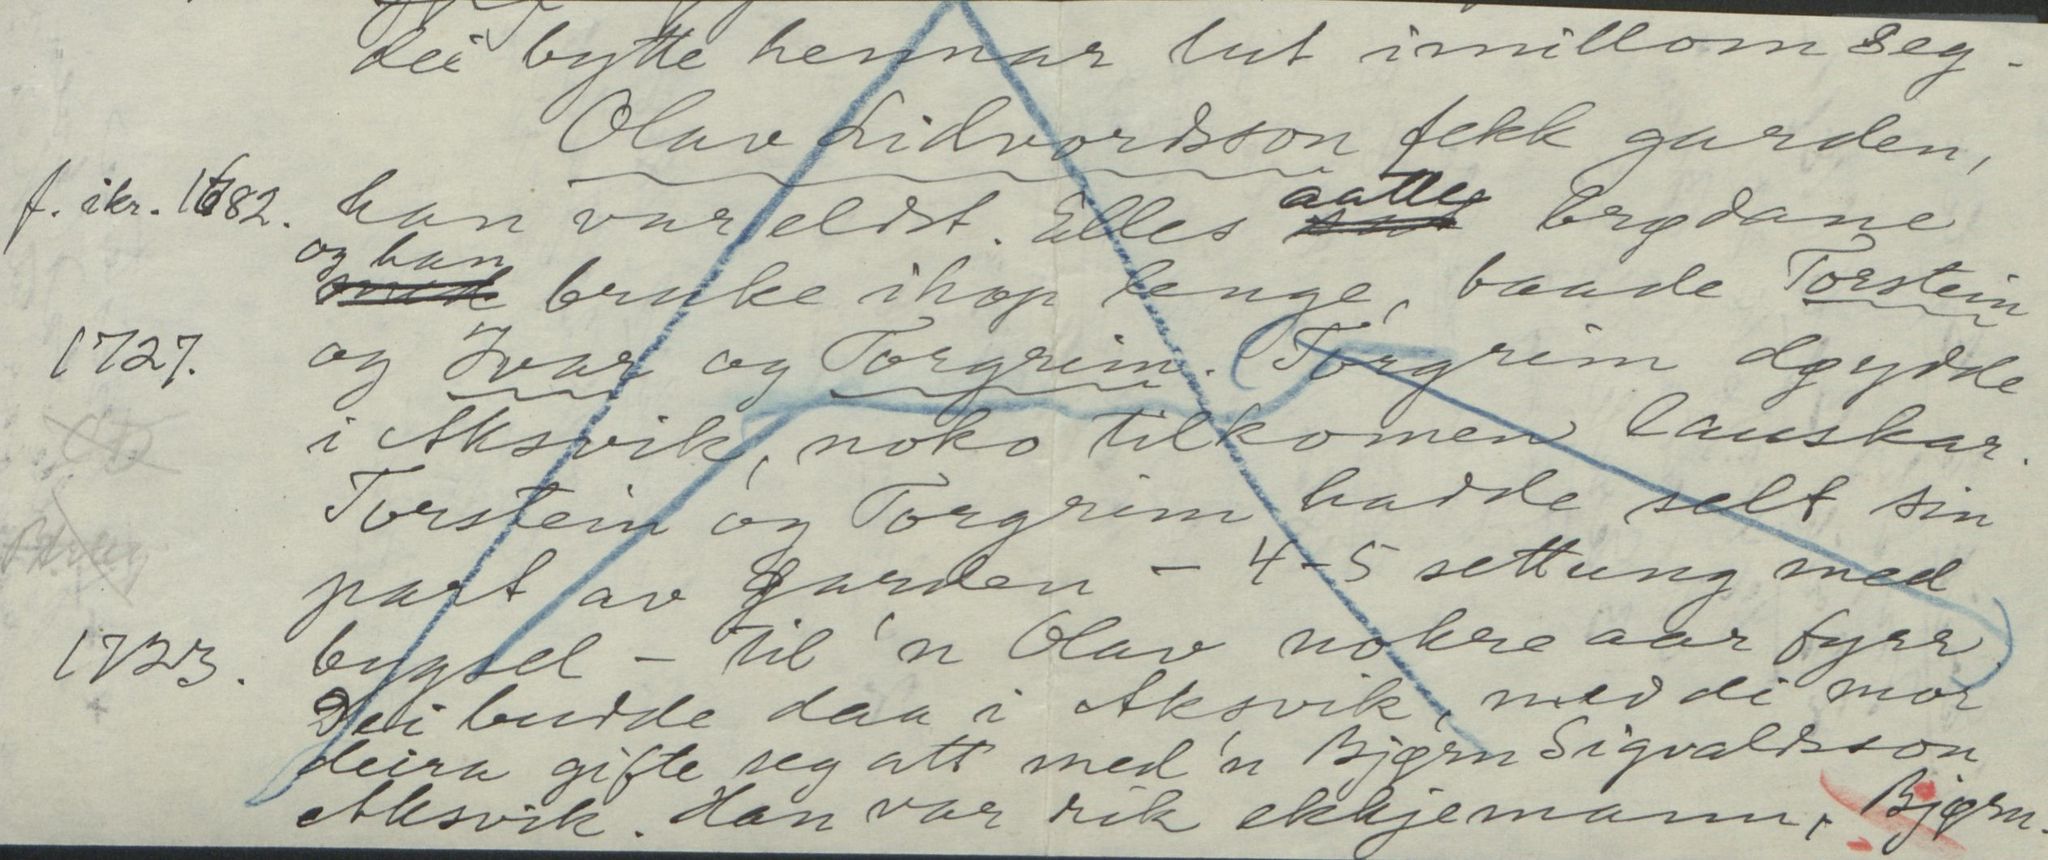 dei bytte hennar lut imillom seg.
Olav Lidvordsson fekk garden,
f. ikr. 1682. han var eldst. Elles aatte brødane
og han bruke ihop lenge, baade Torstein
1727. og Ivar og Torgrim. Torgrim døydde
i Aksvik, noko tilkomen lauskar.
Torstein og Torgrim hadde selt sin
part av garden – 4-5 settung med
1723. bygsel – til 'n Olav nokre aar fyrr.
Dei budde daa i Aksvik, med di mor
deira gifte seg att med 'n Bjørn Sigvaldsson
Aksvik. Han var rik ekkjemann, Bjørn.